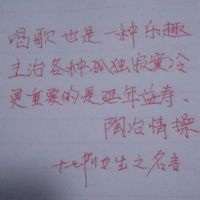 唱歌也是一种乐趣
主治各种孤独寂寞冷
更重要的是延年益寿、
陶冶情操
之名言